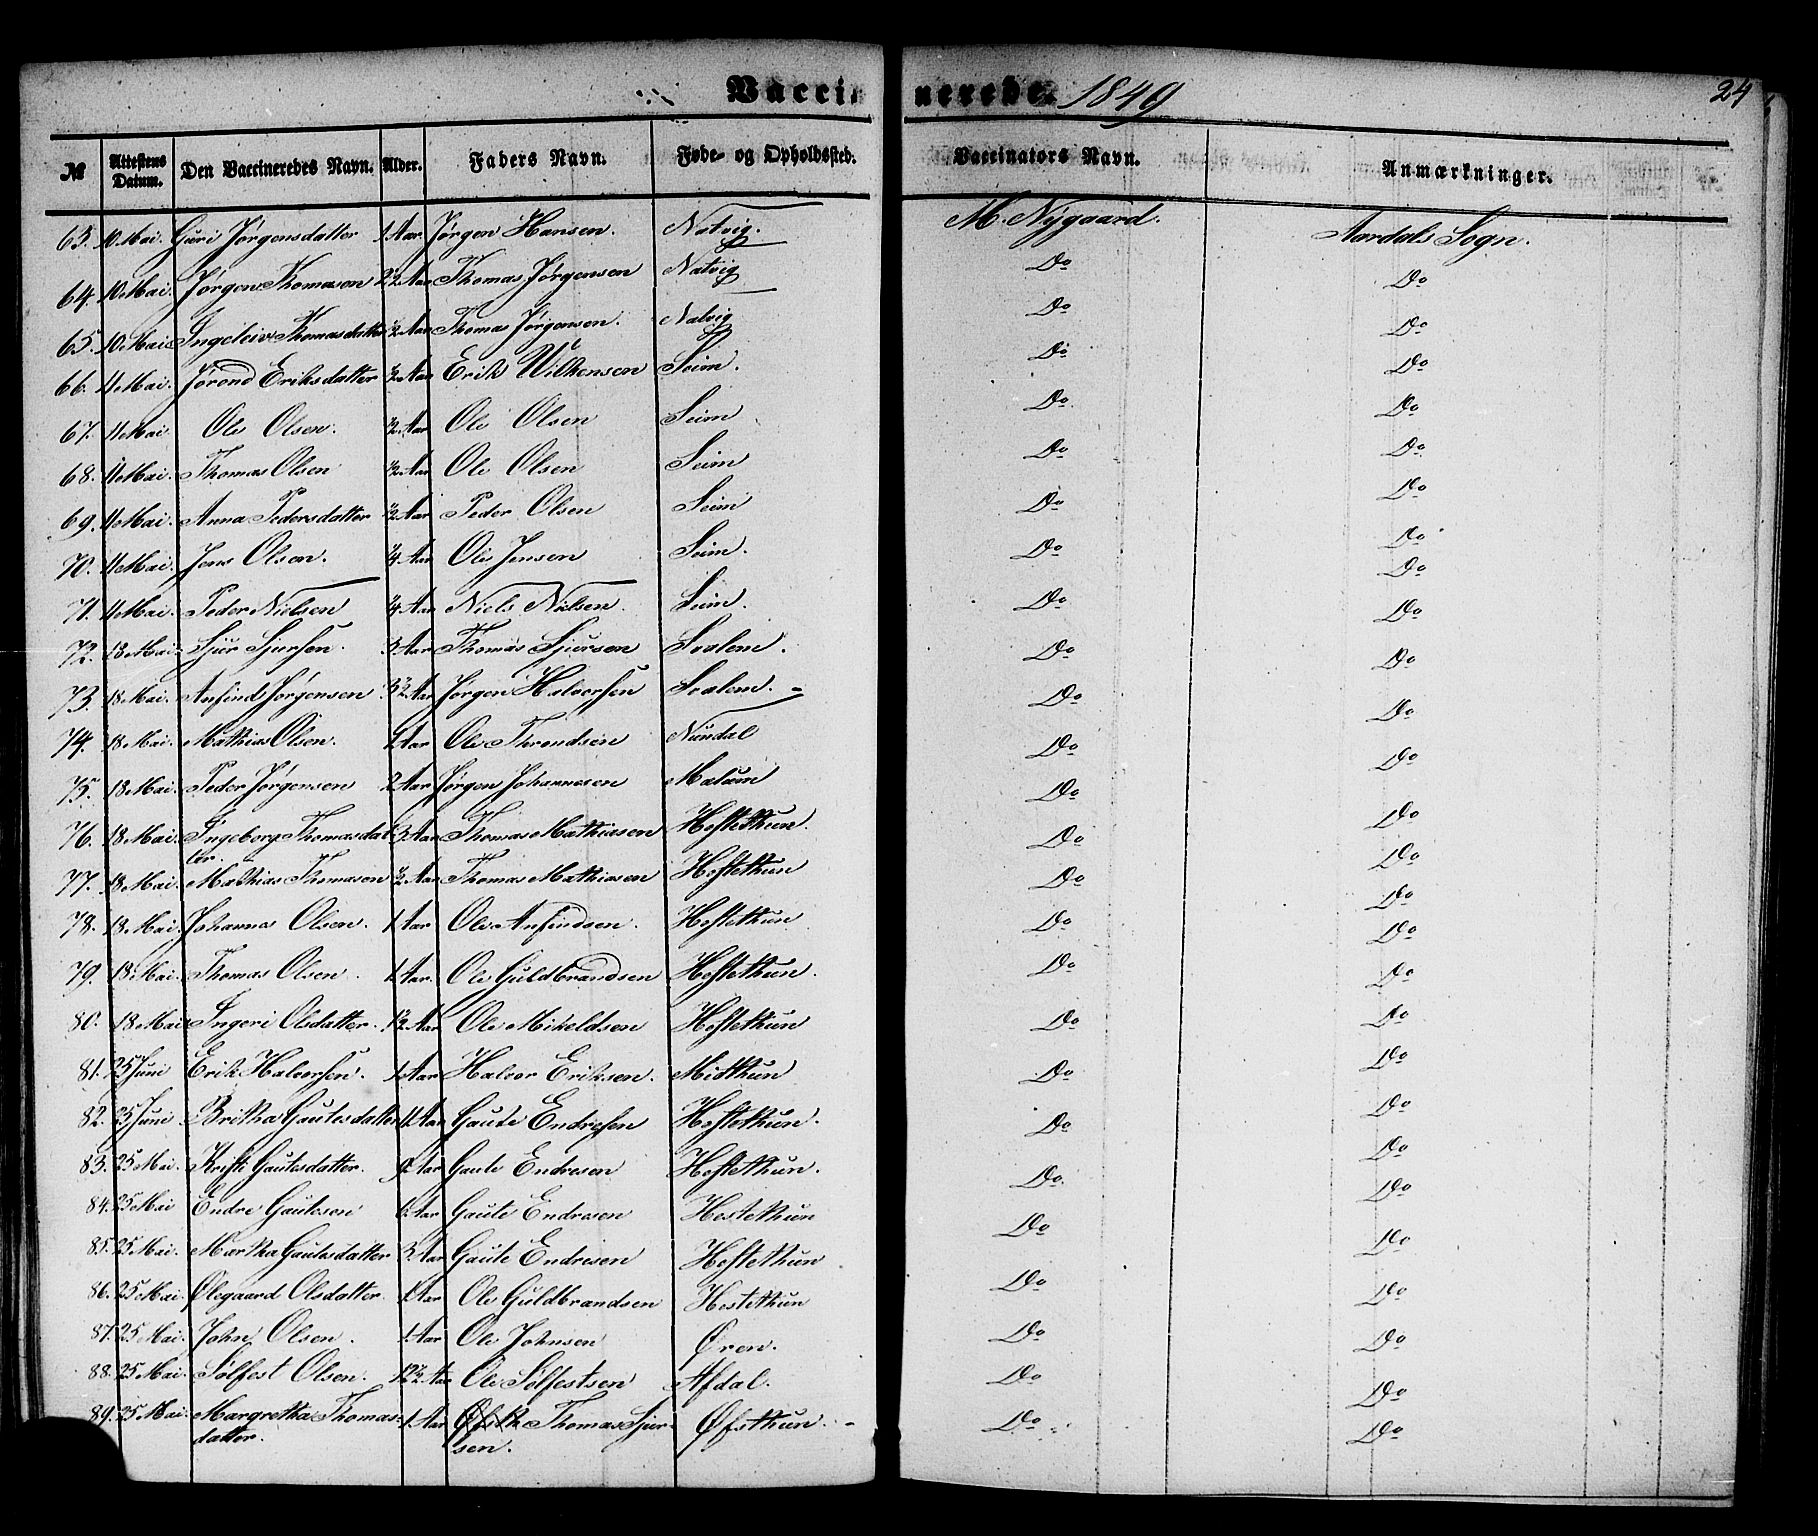 Vaccinerede 1849 24
№ Attestens Datum. Den Vaccineredes Navn. Alder. Faders Navn. Føde- og Opholdssted. Vaccinators Navn. Anmærkninger.
63. 10 Mai. Guri Jørgensdatter 1 Aar Jørgen Hansen. Natvig. M. Nygaard. Aardals Sogn.
64. 10 Mai. Jørgen Thomason 2½ Aar Thomas Jørgensen Natvig Do Do
65. 10 Mai Ingeleiv Thomasdatter ½ Aar Thomas Jørgensen. Natvig Do Do
66. 11 Mai. Jørond Eriksdatter ½ Aar Erik Wilhensen Seim. Do Do
67. 11 Mai Ole Olsen. ½ Aar Ole Olsen Seim Do Do
68. 11 Mai. Thomas Olsen ½ Aar Ole Olsen Seim Do Do
69. 11 Mai. Anna Pedersdatter ½ Aar Peder Olsen Seim Do Do
70. 11 Mai. Jens Olsen. ¼ Aar Ole Jensen Seim. Do Do
71. 11 Mai. Peder Nielsen ¼ Aar Niels Nielsen. Seim. Do Do
72. 18 Mai. Sjur Sjursen. 3 Aar Thomas Sjursen Svalem. Do Do
73. 18 Mai. Anfind Jørgensen 3½ Aar Jørgen Halvorsen Svalem. Do Do
74. 18 Mai. Mathias Olsen. Aar Ole Throndsen Nundal Do Do
75. 18 Mai. Peder Jørgensen 2 Aar Jørgen Johannesen Molum Do Do
76. 18 Mai. Ingeborg Thomasdatter. 3 Aar Thomas Mathiasen Hestethun. Do Do
77. 18 Mai. Mathias Thomasen ½ Aar Thomas Mathiasen Hestethun Do Do
78. 18 Mai. Johannes Olsen. 1 Aar Ole Anfindsen. Hestethun Do Do
79. 18 Mai. Thomas Olsen. 1 Aar. Ole Guldbrandsen Hestethun. Do Do
80. 18 Mai Ingeri Olsdatter. 1½ Aar Ole Mikeldsen Hestethun Do Do
81. 25 Juni Erik Halvorsen. 1 Aar Halvor Eriksen. Midthun Do Do
82. 25 Juni Britha Gautesdatter 11 Aar Gaute Endresen Hestethun. Do Do
83. 25 Mai. Kristi Gautesdatter. 9 Aar Gaute Endresen Hestethun. Do Do
84. 25 Mai Endre Gautesen 6 Aar Gaute Endresen Hestethun Do Do
85. 25 Mai. Martha Gautesdatter 3 Aar Gaute Endresen Hestethun Do Do
86. 25 Mai. Ølegaard Olsdatter. 1 Aar Ole Guldbrandsen Hestethun Do Do
87. 25 Mai. John Olsen. 1 Aar Ole Johnsen Øren. Do Do
88. 25 Mai. Sølfest Olsen. 12½ Aar Ole Sølfestsen Afdal. Do Do
89. 25 Mai. Margretha Thomasdatter. 1 Aar Thomas Sjursen. Øfsthun. Do Do